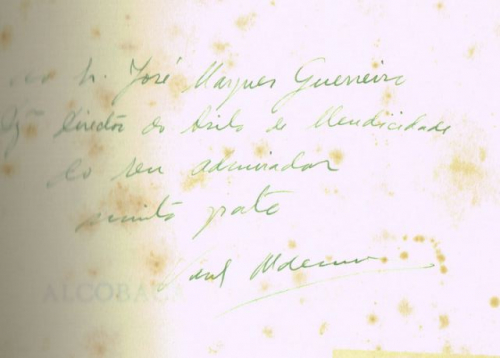 ao Sr. José Marques Guerreiro
Director do Asilo de Mendicidade
do seu admirador
muito grato
ALCOBAÇA